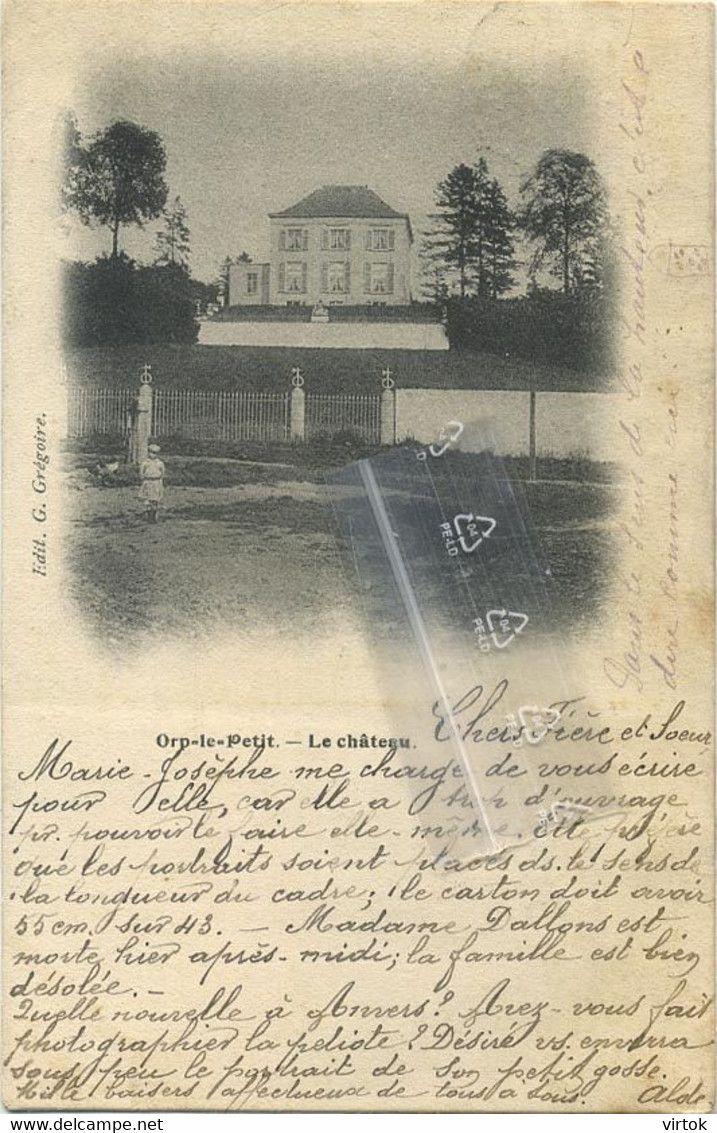 Edit. G. Grégoire.
Orp-le-Petit. — Le château.
Chers Frère et Soeur,
Marie-Josèphe me charge de vous écrire
pour elle, car elle a trop d'ouvrage
pr. pouvoir le faire elle-même. Elle préfère
que les portraits soient placés ds. le sens de
la longueur du cadre; le carton doit avoir
55 cm. sur 43. — Madame Dallons est
morte hier après-midi; la famille est bien
désolée. —
Quelle nouvelle à Anvers? Avez-vous fait
photographier la petiote? Désiré vs. enverra
sous peu le portrait de son petit gosse.
Mille baisers affectueux de tous à tous. Alde.
Dans le sens de la hauteur, c'est à
dire comme ceci:
04
PE-LD
04
PE-LD
virtok